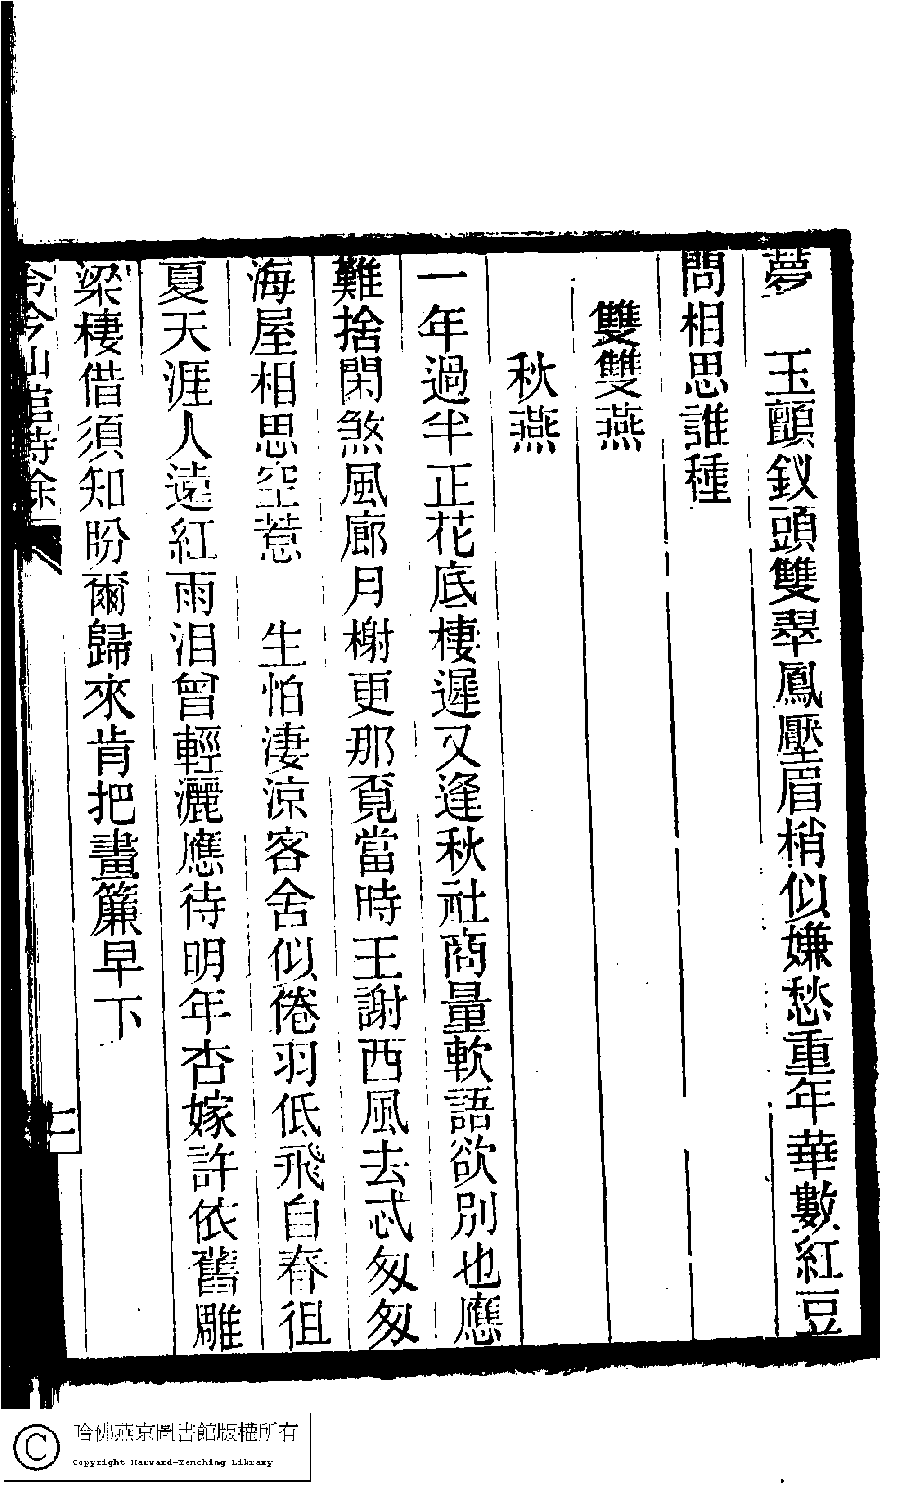 夢　玉顫釵頭雙翠鳳壓眉梢似嫌愁重年華數紅豆
問相思誰種
雙雙燕
秋燕
一年過半正花底棲遲又逢秋社商量軟語欲別也應
難捨閑煞風廊月榭更那覓當時王謝西風去忒匆匆
海屋相思空惹　生怕淒涼客舍似倦羽低飛自春徂
夏天涯人遠紅雨泪曾輕灑應待明年杏嫁許依舊雕
梁棲借須知盼爾歸來肯把畫簾早下
山館詩餘
哈佛燕京圖書館版權所有
Copyright Harvard-Yenching Library